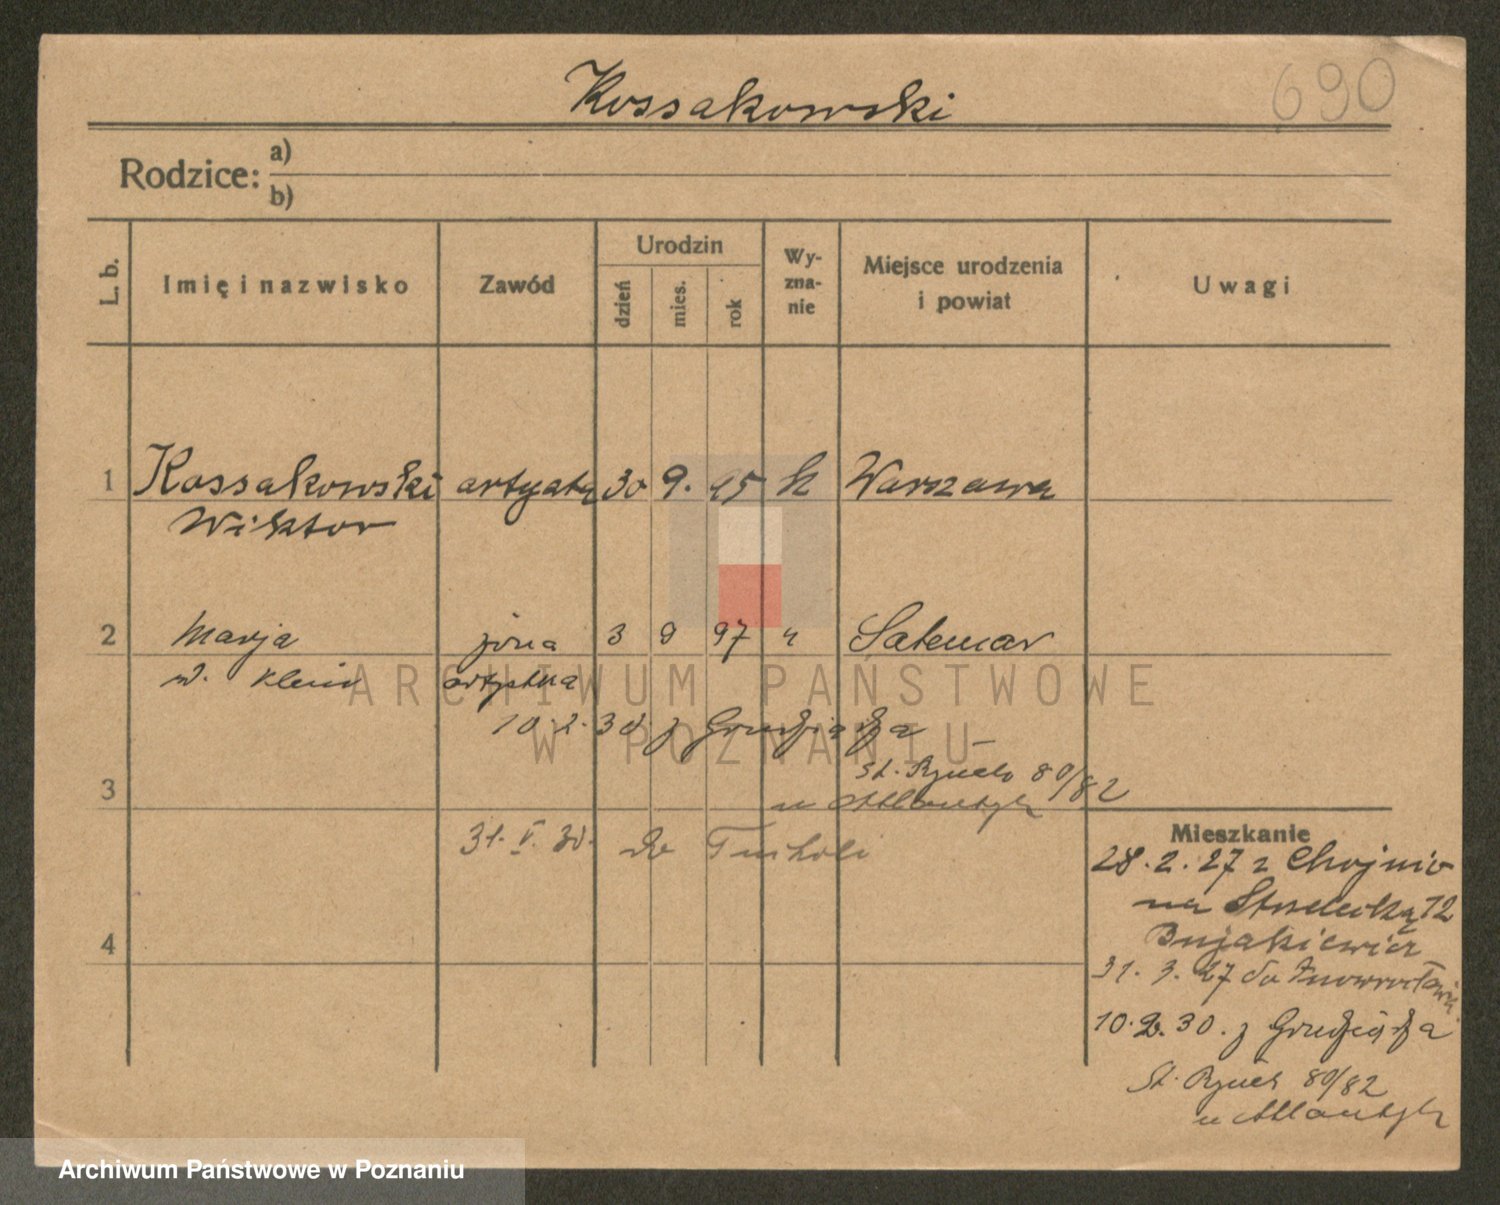 Kossakowski
690
Rodzice: a)
b)
L. b. Imię i nazwisko Zawód Urodzin dzień mies. rok Wy-zna-nie Miejsce urodzenia i powiat Uwagi
1 Kossakowski artysta 30 9. 95 k Warszawa
Wiktor
2 Marja żona 3 9 97 " Satemar
z d. Klein artystka
10.2.30 z Grudziądza
3 St. Rynek 80/82
u
31. V. 30. do Tucholi
Mieszkanie
28.2.27 z Chojnic
na Strzelecką 12
4 Bujakiewicz
31. 3. 27 do Inowrocławia
10.2.30. z Grudziądza
St. Rynek 80/82
u
ARCHIWUM PAŃSTWOWE
W POZNANIU
Archiwum Państwowe w Poznaniu